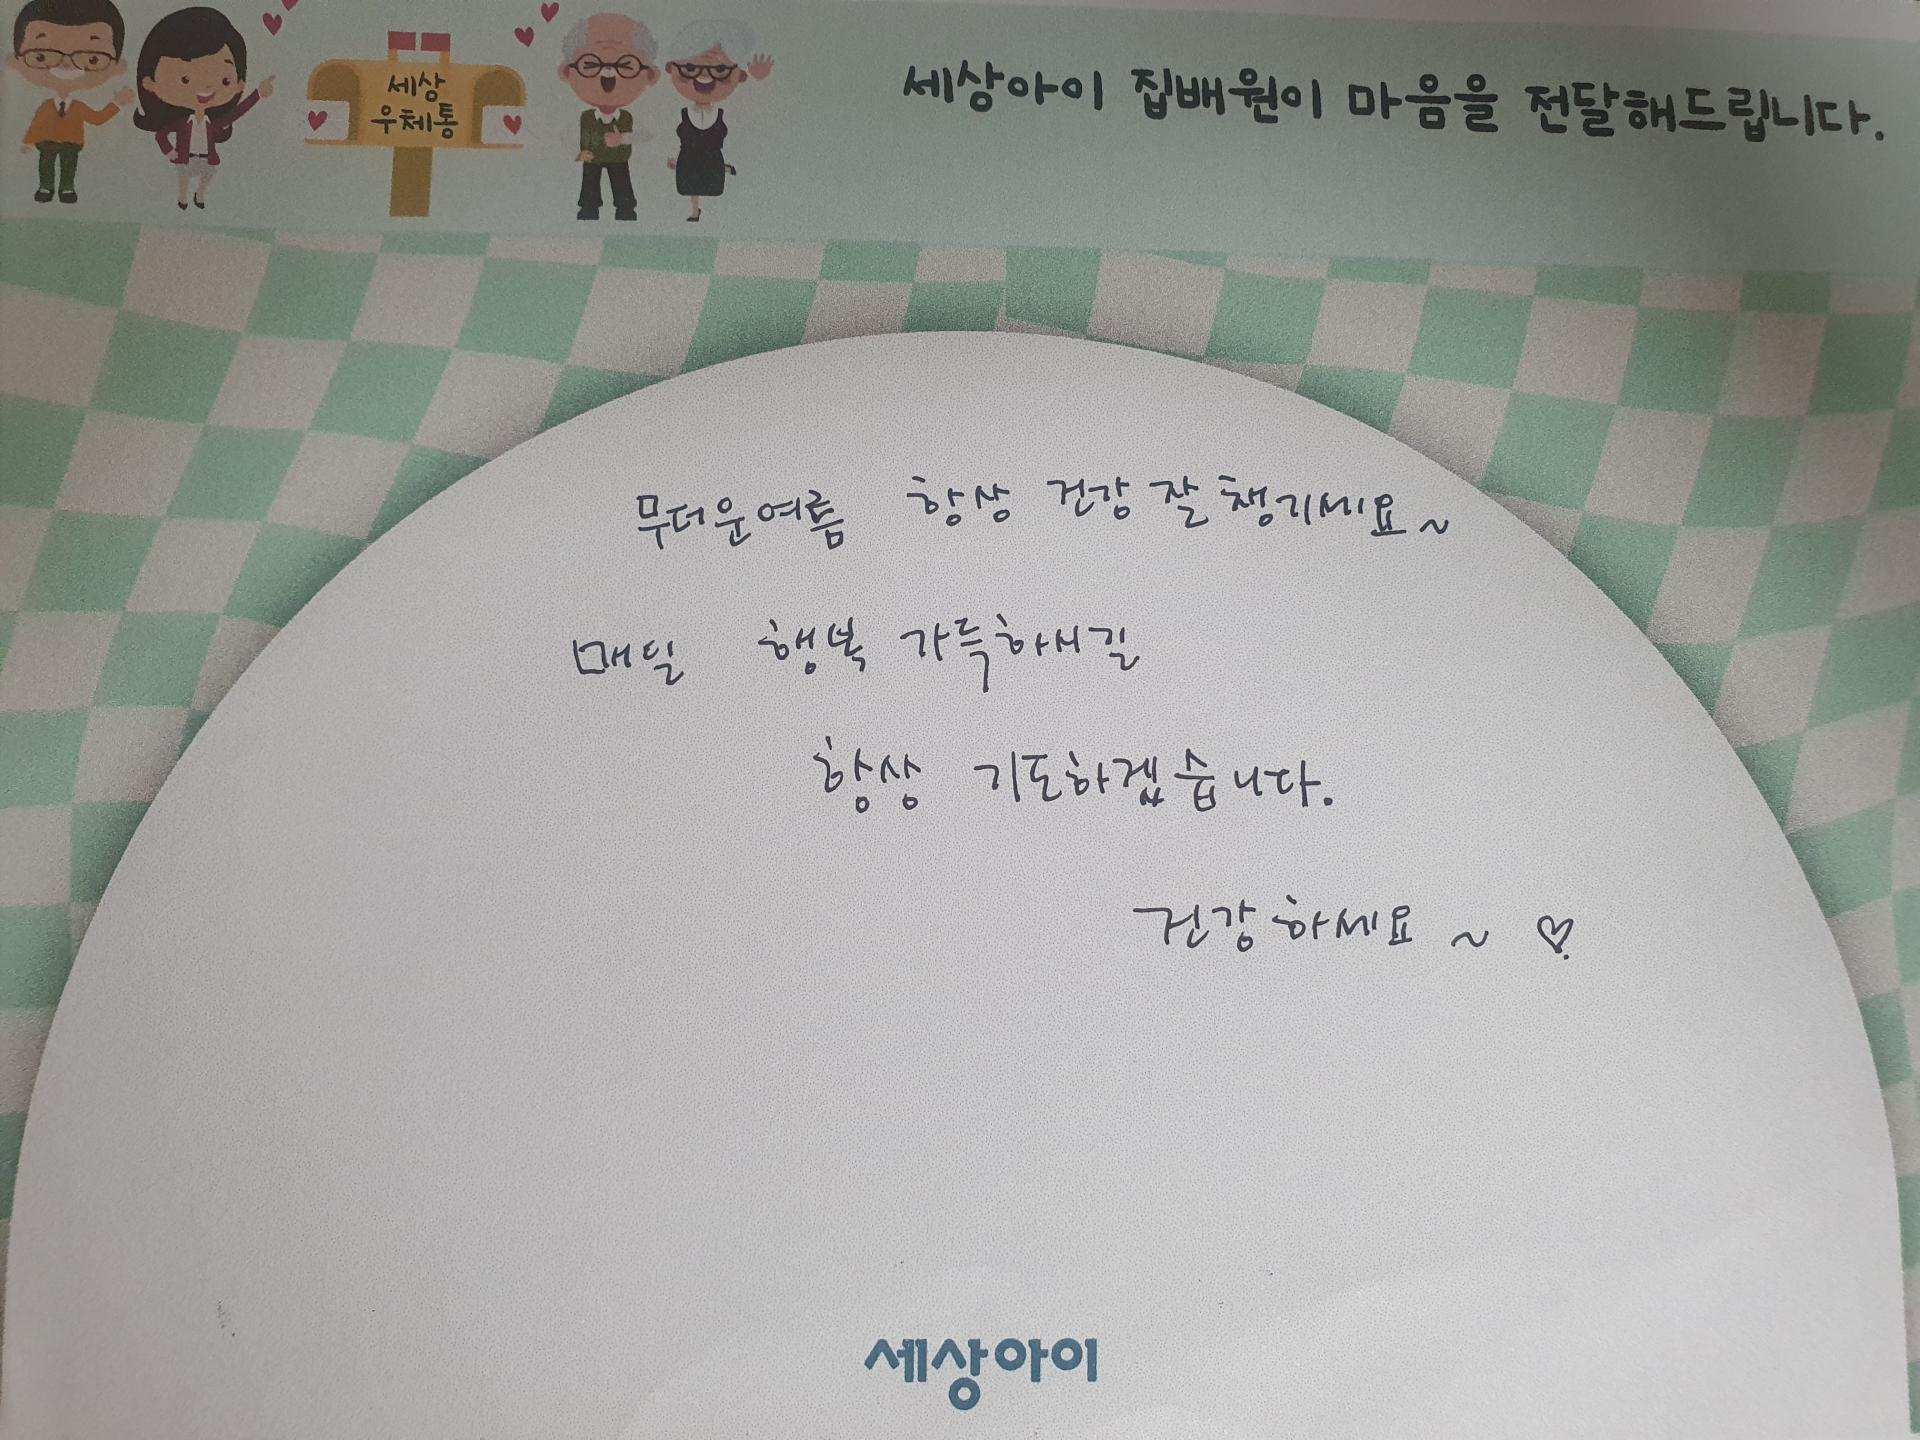 세상
우체통
세상아이 집배원이 마음을 전달해드립니다.
무더운여름 항상 건강 잘 챙기세요~
매일 행복 가득하시길
항상 기도하겠습니다.
건강하세요~ ♡
세상아이